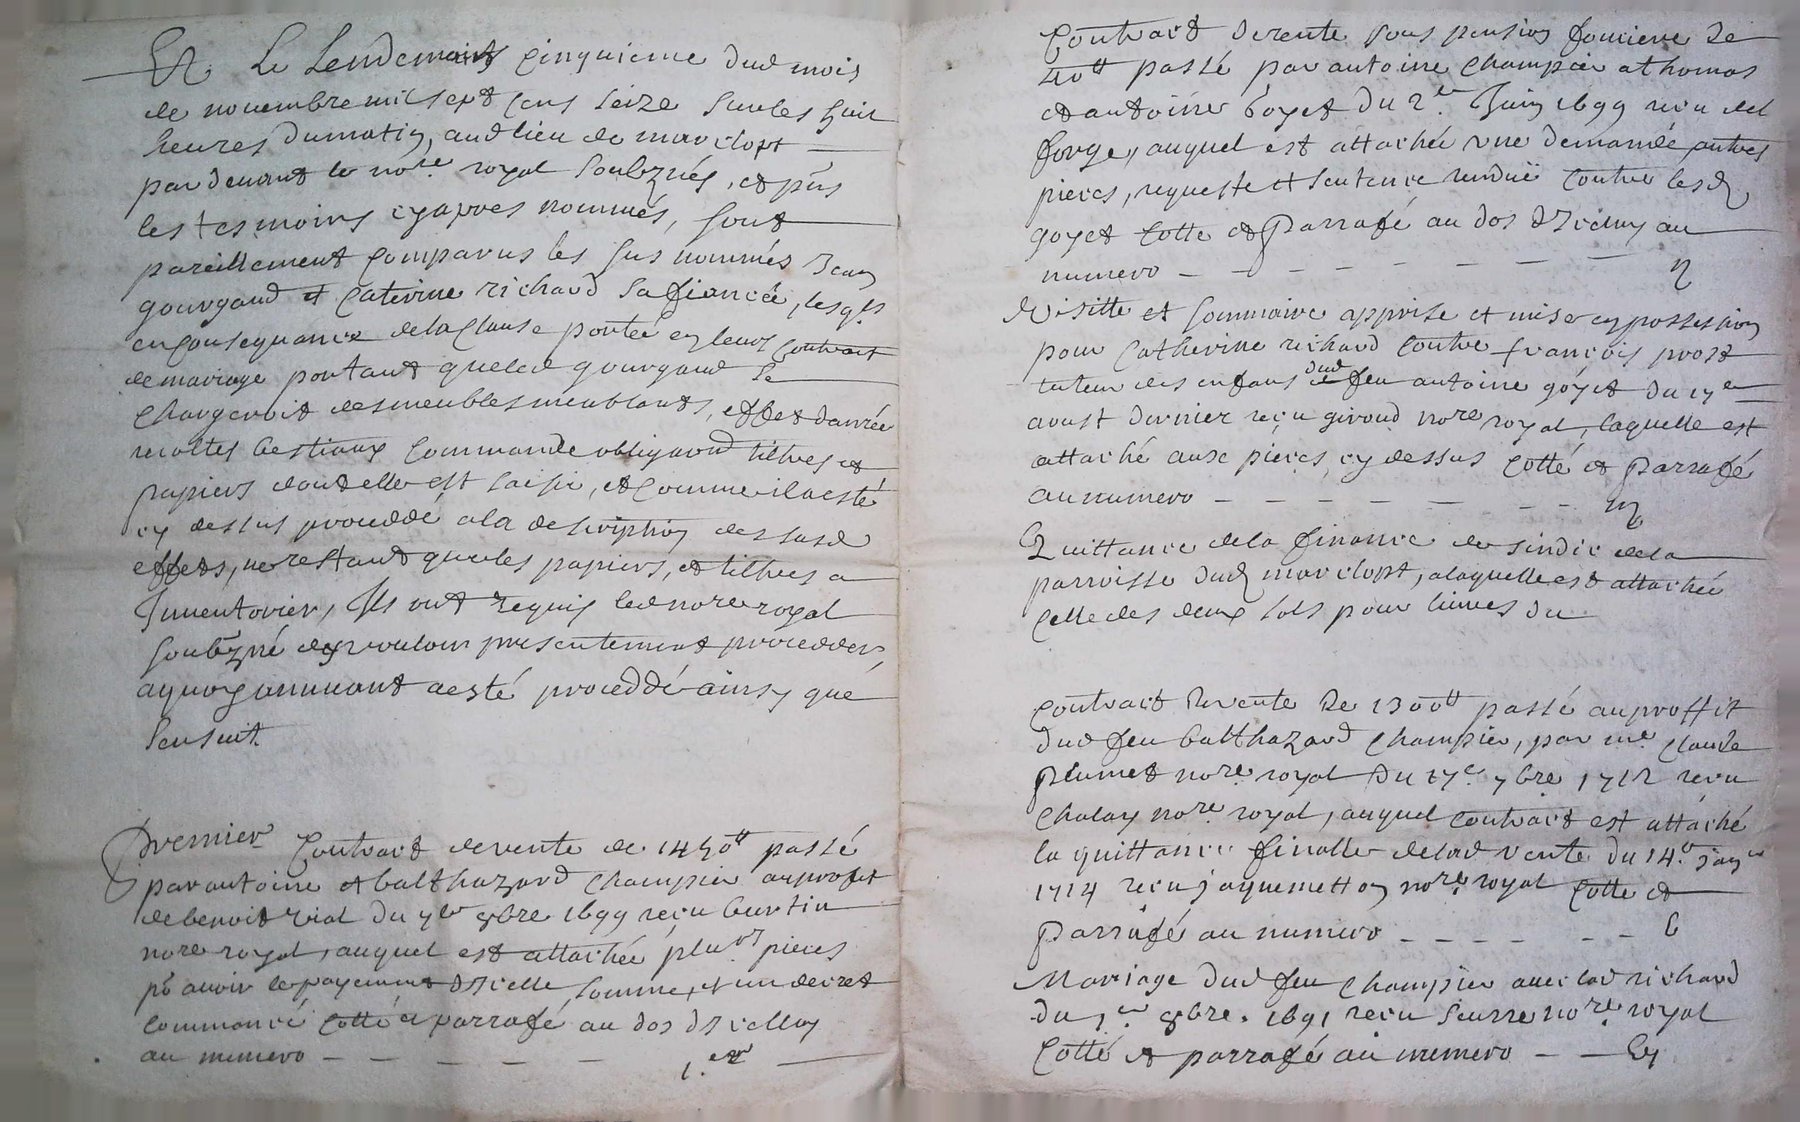 Et Le Lendemain Cinquieme dud mois
de novembre mil sept Cens seize sur les huit
heures du matin, aud lieu de marclopt
par devant le no.re royal soubzné, et pñs
les tesmoins cy apres nommés, sont
pareillement Comparus les sus nommés Jean
gourgaud et Caterine richard sa fiancée, lesq.ls
en Consequance de la Clause portée en leur Contract
de mariage portant que led gourgaud se
Chargeroit des meubles meublants, effet danrée
recoltes bestiaux Commande obligaõns tiltres et
papiers dont elle est saisie, et Comme il a esté
cy dessus proceddé a la description des susd
effets, ne restant que les papiers, et tiltres a
Inventorier, Ils ont requis led nore royal
soubzné de vouloir presentement procedder,
a quoy annuant a esté proceddé ainsy que
sensuit.
Premier Contract de vente de 1450tt passé
par antoine et balthazard Champier au profit
de benoit vial du 9bre 1699 reçu burtin
nore royal, auquel est attachée plus.rs pieces
pr avoir le payement d'Icelle somme, et un decret
Commancé Cotté et parrafé au dos d'Icelluy
au numero - - - - - 1.er
Contract de rente sous pension fonciere de
40tt passé par antoine Champier a thomas
et antoine goyet du 2.e Juin 1699 reçu del
forge, auquel est attachée une demande, autres
pieces, requeste et sentence rendüe Contre lesd
goyet Cotte et Parrafé au dos d'Iceluy au
numero - - - - - - - - 2
Visitte et sommaire apprise et mise en possession
pour Catherine richard Contre françois prost
tuteur des enfans dud feu antoine goyet du 17e
aoust dernier reçu giroud nore royal, laquelle est
attaché aux pieces cy dessus Cotté et parrafé
au numero - - - - - - - 3
Quittance de la finance de sindic de la
parroisse dud marclopt, a laquelle est attachée
Celle des deux sols pour livres du
Contract de vente de 1300tt passé au proffit
dud feu balthazard Champier, par me. Claude
plumet nore royal du 17e 7bre 1712 reçu
Chalay no.re royal, auquel Contract est attaché
la quittance finalle de lad vente du 14.e Janer
1714 reçu Jaquemetton nore royal Cotte et
Parrafé au numero - - - - - -
Mariage dud feu Champier avec lad richard
du 1.er 8bre. 1691 reçu nore. royal
Cotté et parrafé au numero - -